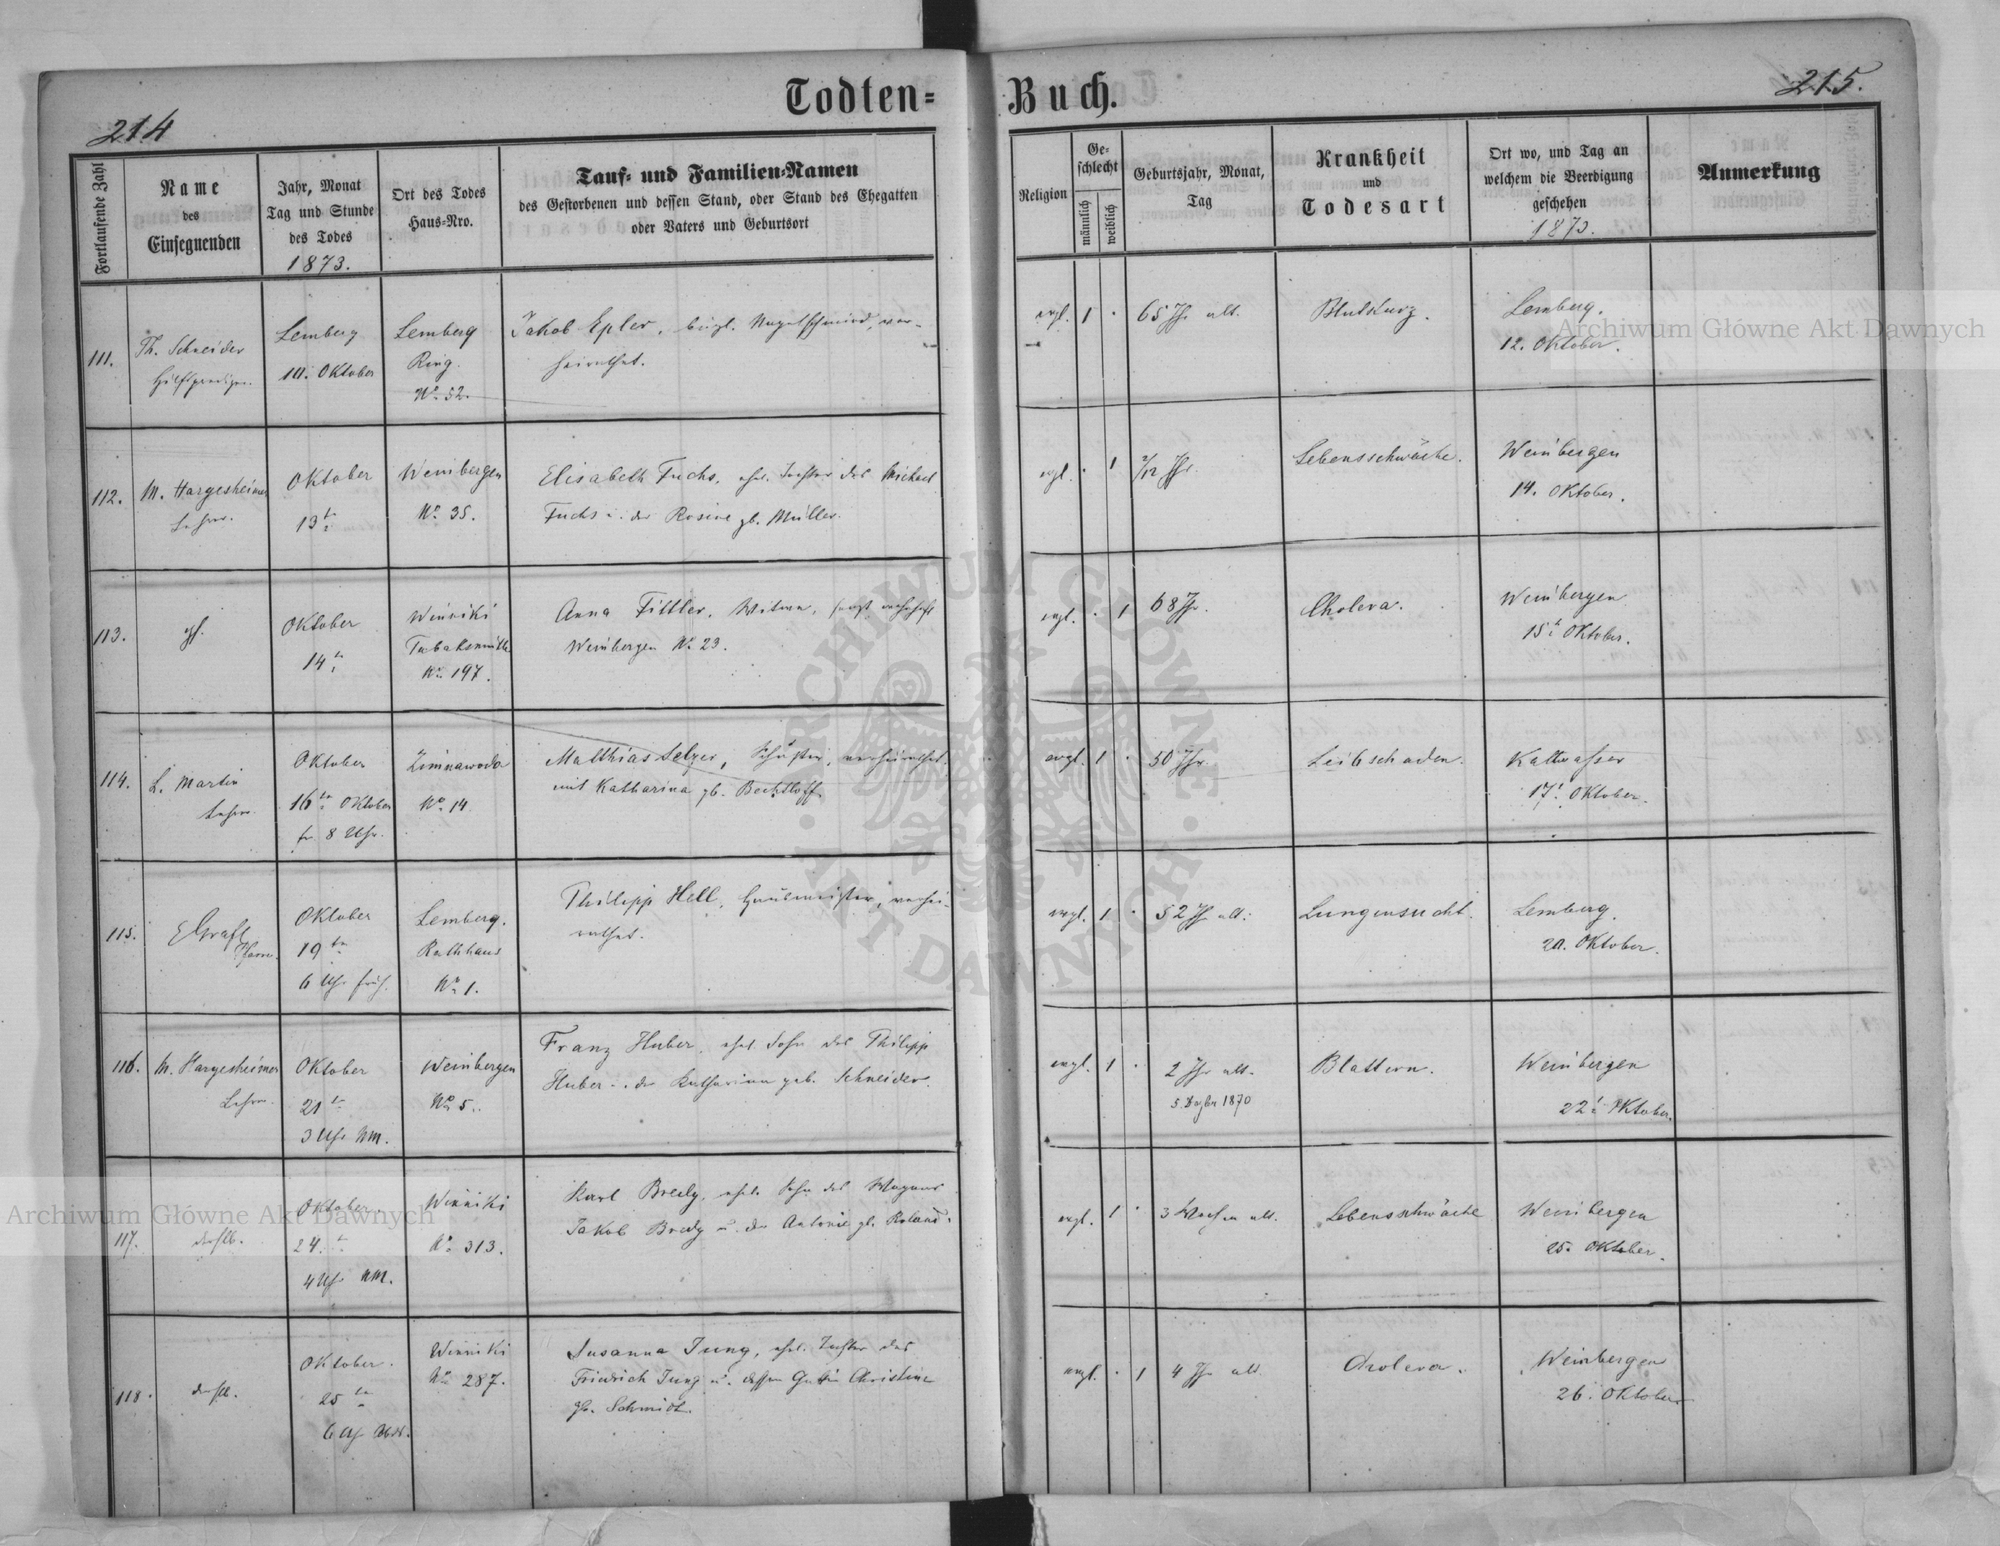 Todten=
Buch.
214
215.
Fortlaufende Zahl
Name
des
Einsegnenden
Jahr, Monat
Tag und Stunde
des Todes
1873.
Ort des Todes
Haus=Nro.
Tauf= und Familien=Namen
des Gestorbenen und dessen Stand, oder Stand des Ehegatten
oder Vaters und Geburtsort
Religion
Ge=
schlecht
männlich
weiblich
Geburtsjahr, Monat,
Tag
Krankheit
und
Todesart
Ort wo, und Tag an
welchem die Beerdigung
geschehen
1873.
Anmerkung
111.
Th. Schneider
Hilfsprediger.
Lemberg
10. Oktober
Lemberg
Ring.
No. 52.
Jakob Epler, bürgl. Nagelschmied, ver-
heirathet.
evgl.
1
65 Jhr alt.
Blutsturz.
Lemberg.
12. Oktober.
112.
M. Hargesheimer
Lehrer.
Oktober
13te
Weinbergen
No. 35.
Elisabeth Fuchs, ehel. Tochter des Michael
Fuchs u. der Rosine gb. Müller.
evgl.
1
2/12 Jhr.
Lebensschwäche.
Weinbergen
14. Oktober.
113.
Oktober
14te
Winniki
No. 197.
Anna Fittler, Witwe,
Weinbergen No. 23.
evgl.
1
68 Jhr.
Cholera.
Weinbergen
15te Oktober.
114.
L. Martin
Lehrer.
Oktober
16te Oktober
fr 8 Uhr.
Zimnawoda
No. 14.
Matthias Selzer, Schuster, verheirathet
mit Katharina gb. Bechtloff.
evgl.
1
50 Jhr.
Leibschaden.
Kaltwasser
17te Oktober.
115.
EGraft
Pfarrer.
Oktober
19te
6 Uhr früh.
Lemberg.
Rathhaus
No. 1.
Philipp Hell, Hausmeister, verhei-
rathet.
evgl.
1
52 Jhr alt.
Lungensucht.
Lemberg.
20. Oktober.
116.
M. Hargesheimer
Lehrer.
Oktober
21te
3 Uhr NM.
Weinbergen
No. 5.
Franz Huber, ehel. Sohn des Philipp
Huber u. der Katharina geb. Schneider.
evgl.
1
2 Jhr alt.
5. Dezber 1870
Blattern.
Weinbergen
22te Oktober.
117.
derselb.
Oktober.
24.te
4 Uhr NM.
Winniki
No. 313.
Karl Bredy, ehel. Sohn des Wagners
Jakob Bredy u. der Antonie gb. Roland.
evgl.
1
3 Wochen alt.
Lebensschwäche
Weinbergen
25. Oktober.
118.
derselb.
Oktober.
25te
6 Uhr Abds.
Winniki
No. 287.
Susanna Jung, ehel. Tochter des
Friedrich Jung u. dessen Gattin Christine
gb. Schmidt.
evgl.
1
4 Jhr alt
Cholera.
Weinbergen
26. Oktober
Archiwum Główne Akt Dawnych
Archiwum Główne Akt Dawnych
ARCHIWUM GŁÓWNE
AKT DAWNYCH